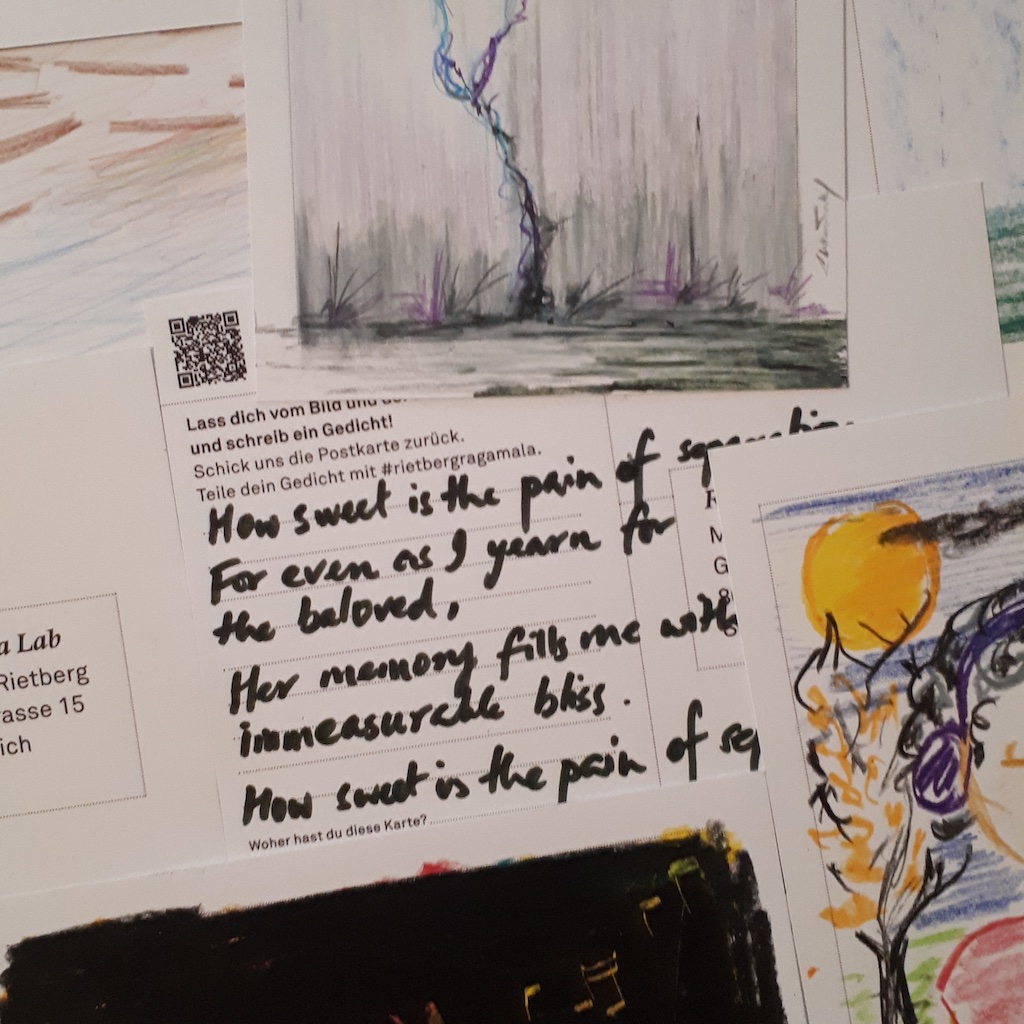 Lass dich vom Bild und
und schreib ein Gedicht!
Schick uns die Postkarte zurück.
Teile dein Gedicht mit #rietbergragamala.
How sweet is the pain of separation
For even as I yearn for
the beloved,
Her memory fills me with
immeasurable bliss.
How sweet is the pain of sep
Woher hast du diese Karte?
a Lab
Rietberg
rasse 15
ich
R
M
G